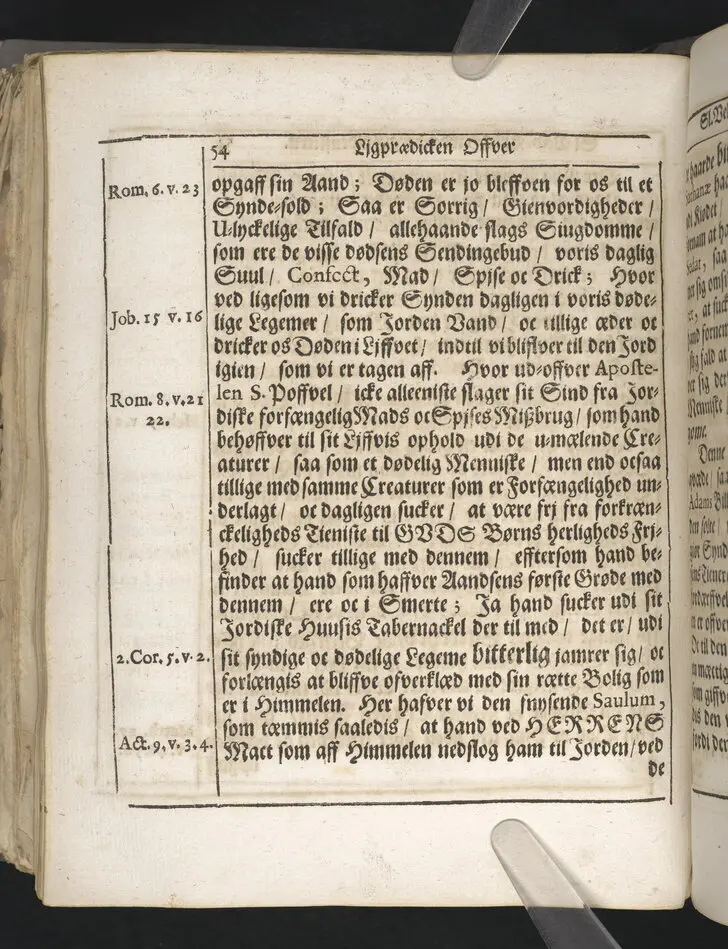 54 Ljgprædicken Offver
Rom. 6. v. 23 opgaff sin Aand ; Døden er jo bleffven for os til et
Synde-sold ; Saa er Sorrig / Gienvordigheder /
Ulyckelige Tilfald / allehaande slags Siugdomme /
som ere de visse dødsens Sendingebud / voris daglig
Suul / Confect, Mad / Spjse oc Drick ; Hvor
ved ligesom vi dricker Synden dagligen i voris døde-
Job. 15 v. 16 lige Legemer / som Jorden Vand / oc tillige æder oc
dricker os Døden i Ljffvet / indtil vi bliffver til den Jord
igien / som vi er tagen aff. Hvor ud-offver Aposte-
Rom. 8. v. 21 len S. Poffvel / icke alleeniste slager sit Sind fra Jor-
22. diske forfængelig Mads oc Spjses Mißbrug / som hand
behøffver til sit Ljffvis ophold udi de u-mælende Cre-
aturer / saa som et dødelig Menniske / men end ocsaa
tillige med samme Creaturer som er Forfængelighed un-
derlagt / oc dagligen sucker / at være frj fra forkræn-
ckeligheds Tieniste til GVDS Børns herligheds Frj-
hed / sucker tillige med dennem / efftersom hand be-
finder at hand som haffver Aandsens første Grøde med
dennem / ere oc i Smerte ; Ja hand sucker udi sit
Jordiske Huusis Tabernackel der til med / det er / udi
2. Cor. 5. v. 2. sit syndige oc dødelige Legeme bitterlig jamrer sig / oc
forlængis at bliffve ofverklæd med sin rætte Bolig som
er i Himmelen. Her hafver vi den snysende Saulum,
som tæmmis saaledis / at hand ved HERRENS
Act. 9. v. 3. 4. Mact som aff Himmelen nedslog ham til Jorden / ved
de